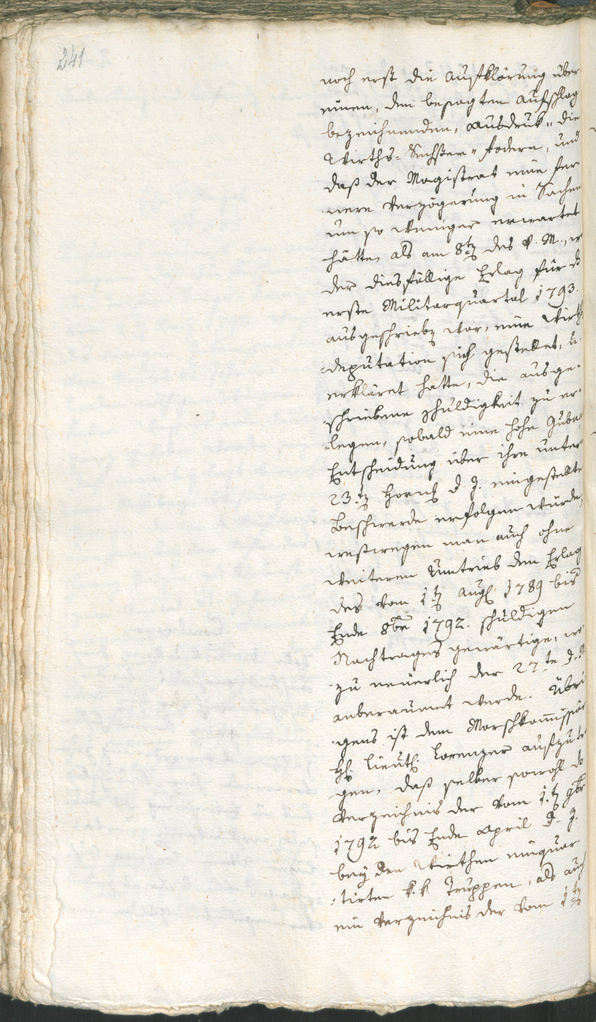 241
noch erst die Aufklärung über
einen, dem besagten Aufschlag
bezeichnenden, Ausdruk, "die
Wirths-Sechster" fodern, und
daß der Magistrat eine fer-
nere Verzögerung in Sachen
um so weniger erwartet
hätte, als am 8tn des v. M.,
der diesfällige Erlag für
erste Militarquartal 1793.
ausgeschriebn war, eine Wirth
deputation sich gestellet, u.
erkläret hatte, die ausge-
schriebene Schuldigkeit zu er-
legen, sobald eine hohe Gube
Entscheidung über ihre unter
23.tn Hornß d. J. eingestellte
Beschwerde erfolgen würde,
weswegen man auch ohne
weiterem Umtrieb dem Erlag
des vom 1tn Augß 1789 bis
Ende 8ber 1792. schuldigen
Nachtrages gewärtige,
zu neuerlich der 27te d.
anberaumt werde. Übri-
gens ist dem Marschkommissär
H. Lieut. Lorenzer aufzutra
gen, daß selber sowohl
Verzeichnis der vom 1.tn 9ber
1792 bis Ende April d. J.
bey den Wirthen einquar-
tirten k. k. Truppen, als auch
ein Verzeichnis der vom 1tn